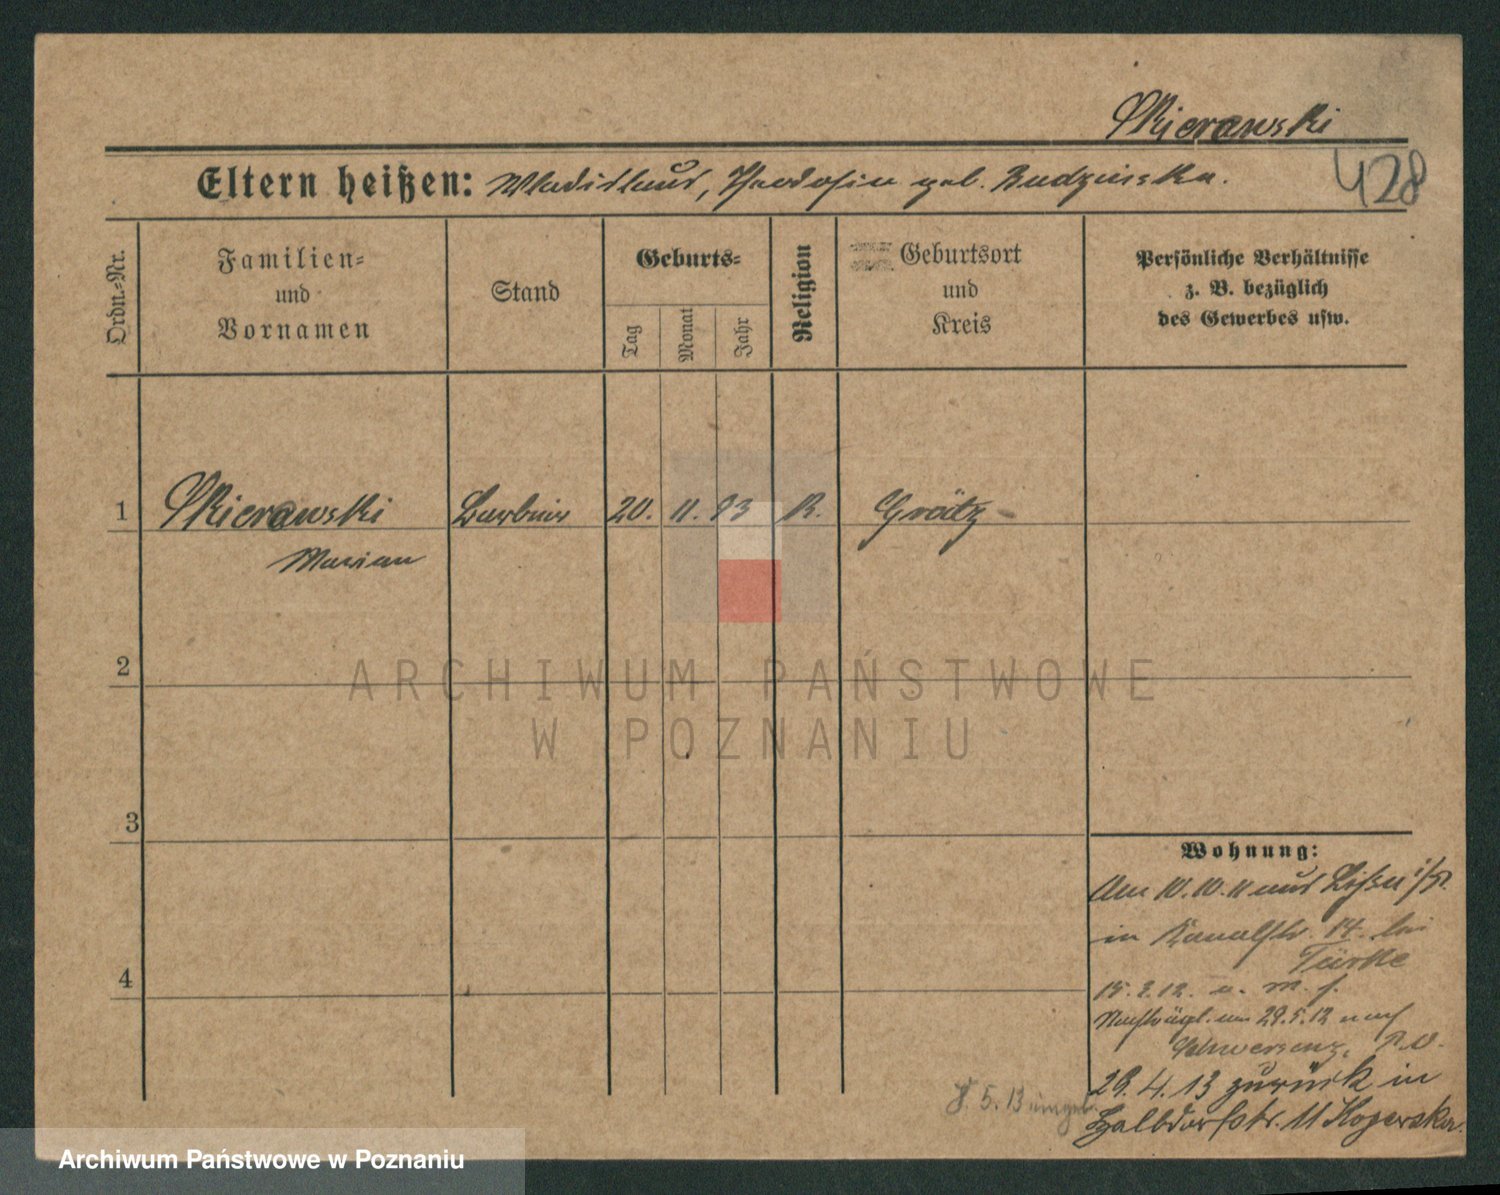 Skierawski
428
Eltern heißen: Wladislaus, Theodosia geb. Budzinska.
Ordn.-Nr.
Familien-
und
Vornamen
Stand
Geburts-
Tag
Monat
Jahr
Religion
Geburtsort
und
Kreis
Persönliche Verhältnisse
z. B. bezüglich
des Gewerbes usw.
1 Skierawski Barbier 20. 11. 93 K. Grätz
Marian
2
ARCHIWUM PAŃSTWOWE
W POZNANIU
3
4
Wohnung:
Am 10.10.11 aus Lissa i/P.
in Kanalstr. 14 bei
Türke
15.2.12. u. m. f.
Nachträgl. am 29.5.12 nach
Schwersenz, P.O.
29.4.13 zurück in
Halbdorfstr. 11 Kozerska.
8.5.13 umgeb.
Archiwum Państwowe w Poznaniu